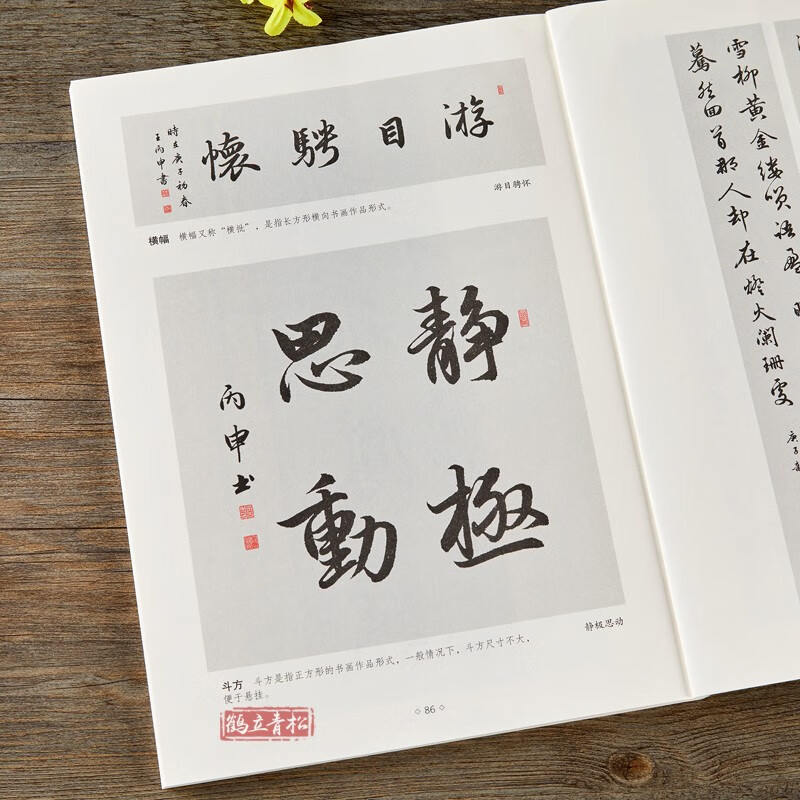 游目騁懷
時在庚子初春
王丙申書
游目骋怀
横幅 横幅又称“横批”，是指长方形横向书画作品形式。
静極
思動
丙申书
静极思动
斗方 斗方是指正方形的书画作品形式，一般情况下，斗方尺寸不大，
便于悬挂。
86
鹤立青松
雪柳黄金缕笑语盈
驀然回首那人却在燈火阑珊處
庚子